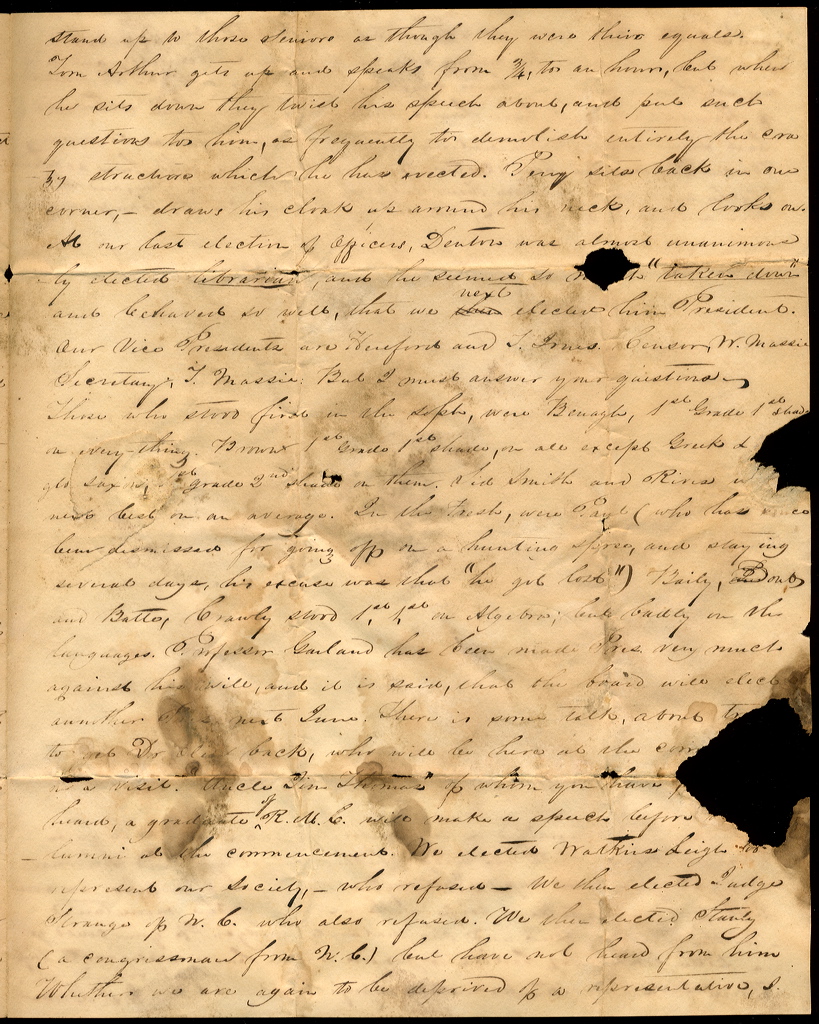 stand up to those Seniors as though they were their equals.
Tom Arthur gets up and speaks from ¾, to an hour, but when
he sits down they twist his speech about, and put such
questions to him, as frequently to demolish entirely the cra
zy structure which he has erected. Perry sits back in one
corner, – draws his cloak up around his neck, and looks on.
At our last election of Officers, Denton was almost unanimous
ly elected librarian, and he seemed so "taken down"
and behaved so well, that we next elected him President.
Our Vice Presidents are Hereford and T. Irnes. Censor, W. Massie
Secretary, T. Massie. But I must answer your questions
Those who stood first in the Soph, were Benagh, 1st Grade 1st shade
on every thing. Brown 1st Grade 1st shade, on all except Greek &
grade 2nd shade on them. Sid Smith and Rives
next best on an average. In the Fresh, were (who has since
been dismissed for going off on a hunting spree, and staying
several days, his excuse was that "he got lost") Baily,
and Batte, Crawly stood 1st, 1st on Algebra; but badly on the
languages. Professor Garland has been made Pres. very much
against his will, and it is said, that the board will elect
annother next June. There is some talk, about
to get Dr back, who will be here at the
as a visit. "Uncle Jim Thomas" of whom you have
heard, a graduate of R. M. C. will make a speech before
lumni at the commencement. We elected Watkins Leigh to
represent our Society, – who refused – We then elected Judge
Strange of N. C. who also refused. We then elected Stanly
(a congressman from N. C.) but have not heard from him
Whether we are again to be deprived of a representative, I.